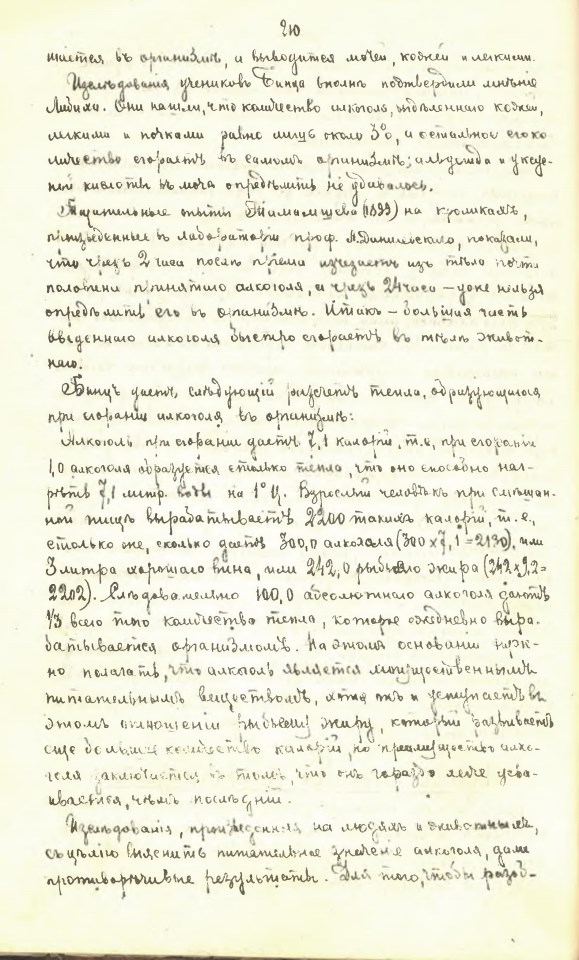 210
шается въ организмѣ, и выводится мочей, кожей и легкими.
Изслѣдованія учениковъ Бинца вполнѣ подтвердили мнѣніе
Либиха. Они нашли, что количество алкоголь, выдѣленнаго кожей,
легкими и почками равно лишь около 3%, и остальное его ко
личество сгораетъ въ самомъ организмѣ; альдегида и уксус-
ной кислоты въ моче опредѣлить не удивалось.
Тщательные опыты (1899) на кроликахъ,
произведенные въ лабораторіи проф. А. Данилевскаго, показали,
что чрезъ 2 часа послѣ пріема изчезаетъ изъ тѣла почти
половина принятаго алкоголя, и чрезъ 24 часа — уже нельзя
опредѣлить его въ организмѣ. Итакъ — большая часть
введеннаго алкоголя быстро сгораетъ въ тѣлѣ живот-
наго.
Бинцъ даетъ слѣдующій разсчетъ тепла, образующагося
при сгораніи алкоголя въ организмѣ:
Алкоголь при сгораніи даетъ 7,1 калорій, т.е. при сгораніи
1,0 алкоголя образуется столько тепла, что оно способно наг-
рѣть 7,1 литр. воды на 1° Ц. Взрослый человѣкъ при смѣшан-
ной пищѣ вырабатываетъ 2200 такихъ калорій, т.е.,
столько же, сколько даетъ 300,0 алкоголя (300 x 7,1 = 2130), или
3 литра хорошаго вина, или 242,0 рыбьяго жира (242 x 9,2=
2202). Слѣдовательно 100,0 абсолютнаго алкоголя даютъ
1/3 всего того количества тепла, которое ежедневно выра-
батывается организмомъ. На этомъ основаніи мож-
но полагать, что алкоголь является могущественнымъ
питательнымъ веществомъ, хотя онъ и уступаетъ въ
этомъ отношеніи рыбьему жиру, который развиваетъ
еще большее количество калорій, но преимущество алко-
голя заключается въ томъ, что онъ гораздо легче усва-
ивается, чѣмъ послѣдній.
Изслѣдованія, произведенныя на людяхъ и животныхъ,
съ цѣлію выяснить питательное значеніе алкоголя, дали
противорѣчивые результаты. Для того, чтобы разоб-